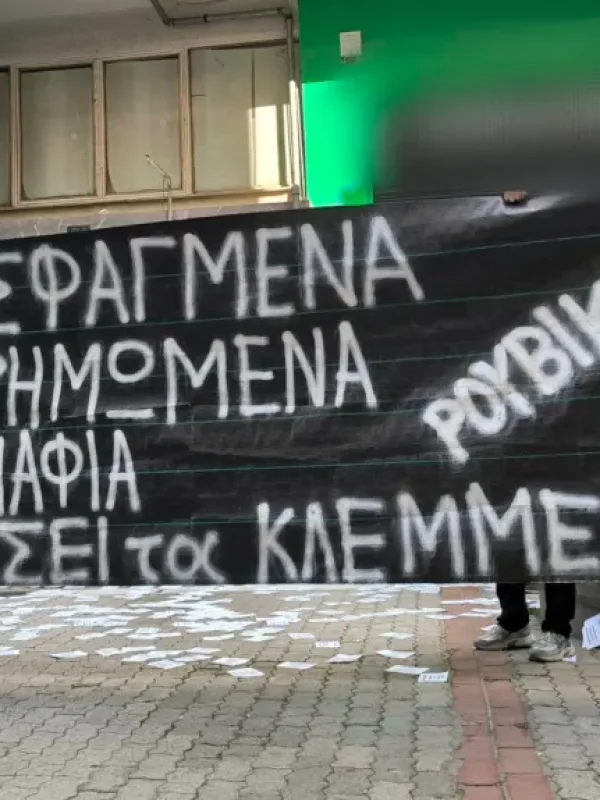 ΣΦΑΓΜΕΝΑ
ΡΗΜΩΜΕΝΑ
ΜΑΦΙΑ
ΣΕΙ τα ΚΛΕΜΜΕ
ΡΟΥΒΙΚ